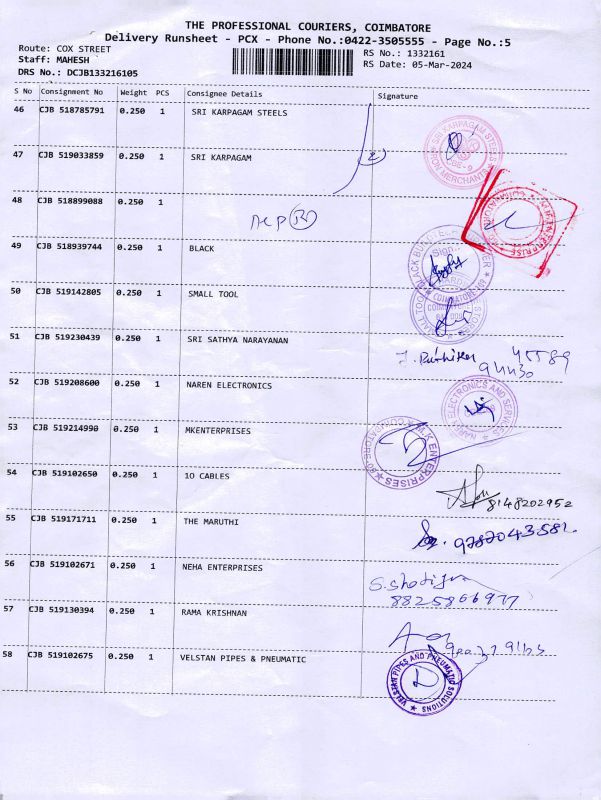 THE PROFESSIONAL COURIERS, COIMBATORE
Delivery Runsheet - PCX - Phone No.:0422-3505555 - Page No.:5
Route: COX STREET
RS No.: 1332161
Staff: MAHESH
RS Date: 05-Mar-2024
DRS No.: DCJB133216105
S No Consignment No Weight PCS Consignee Details Signature
46 CJB 518785791 0.250 1 SRI KARPAGAM STEELS
47 CJB 519033859 0.250 1 SRI KARPAGAM
SRI KARPAGAM STEELS
IRON MERCHANTS
48 CJB 518899088 0.250 1
49 CJB 518939744 0.250 1 BLACK
50 CJB 519142805 0.250 1 SMALL TOOL
COIMBATORE
51 CJB 519230439 0.250 1 SRI SATHYA NARAYANAN
52 CJB 519208600 0.250 1 NAREN ELECTRONICS
53 CJB 519214990 0.250 1 MKENTERPRISES
M.K ENTERPRISES
54 CJB 519102650 0.250 1 1O CABLES
8148202952
55 CJB 519171711 0.250 1 THE MARUTHI
9787043581.
56 CJB 519102671 0.250 1 NEHA ENTERPRISES
8825866977
57 CJB 519130394 0.250 1 RAMA KRISHNAN
58 CJB 519102675 0.250 1 VELSTAN PIPES & PNEUMATIC
VELSTAN PIPES AND PNEUMATIC SOLUTIONS